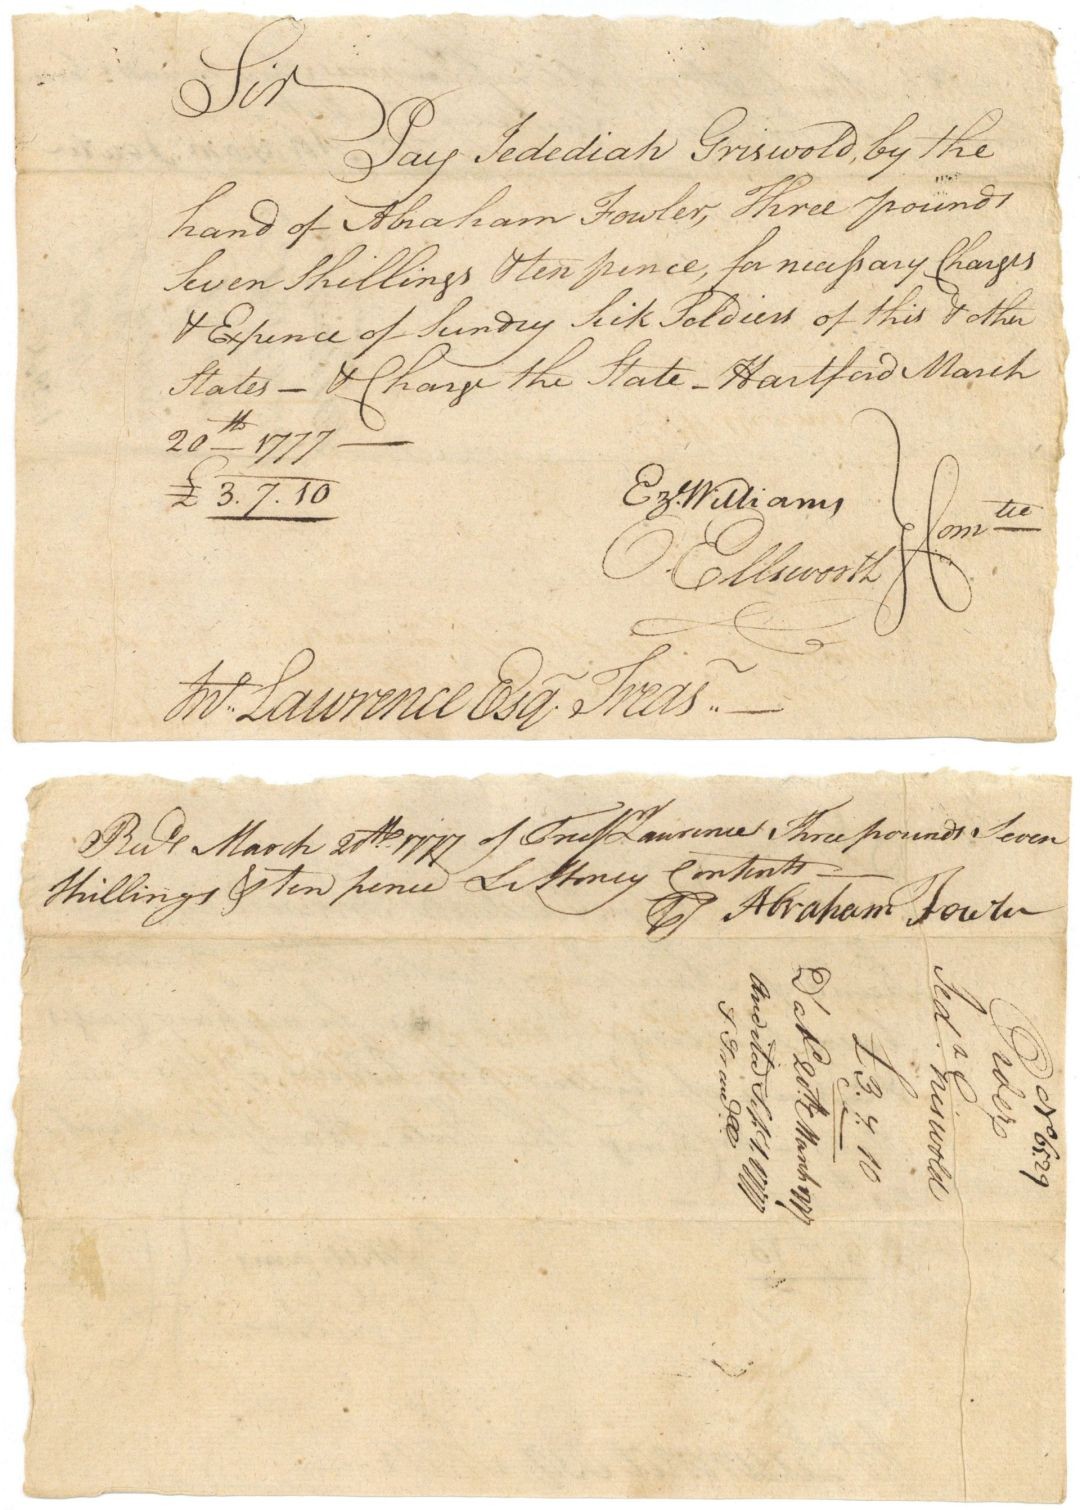 Sir
Pay Jedediah Griswold, by the
hand of Abraham Fowler, Three pounds
Seven Shillings & ten pence, for necessary Charges
& Expence of Sundry Sick Soldiers of this & other
States – & Charge the State – Hartford March
20th 1777 —
£ 3. 7. 10
Ez. Williams
O Ellsworth
Comtee
Jno. Lawrence Esqr. Treasr. —
Recd March 20th 1777 of Treasr Lawrence Three pounds Seven
Shillings & ten pence L. Money Contents —
Abraham Fowler
No 6529
Order
Jedh Griswold
£ 3. 7. 10
Dat. 20th March 1777
Audited Sept 1. 1777